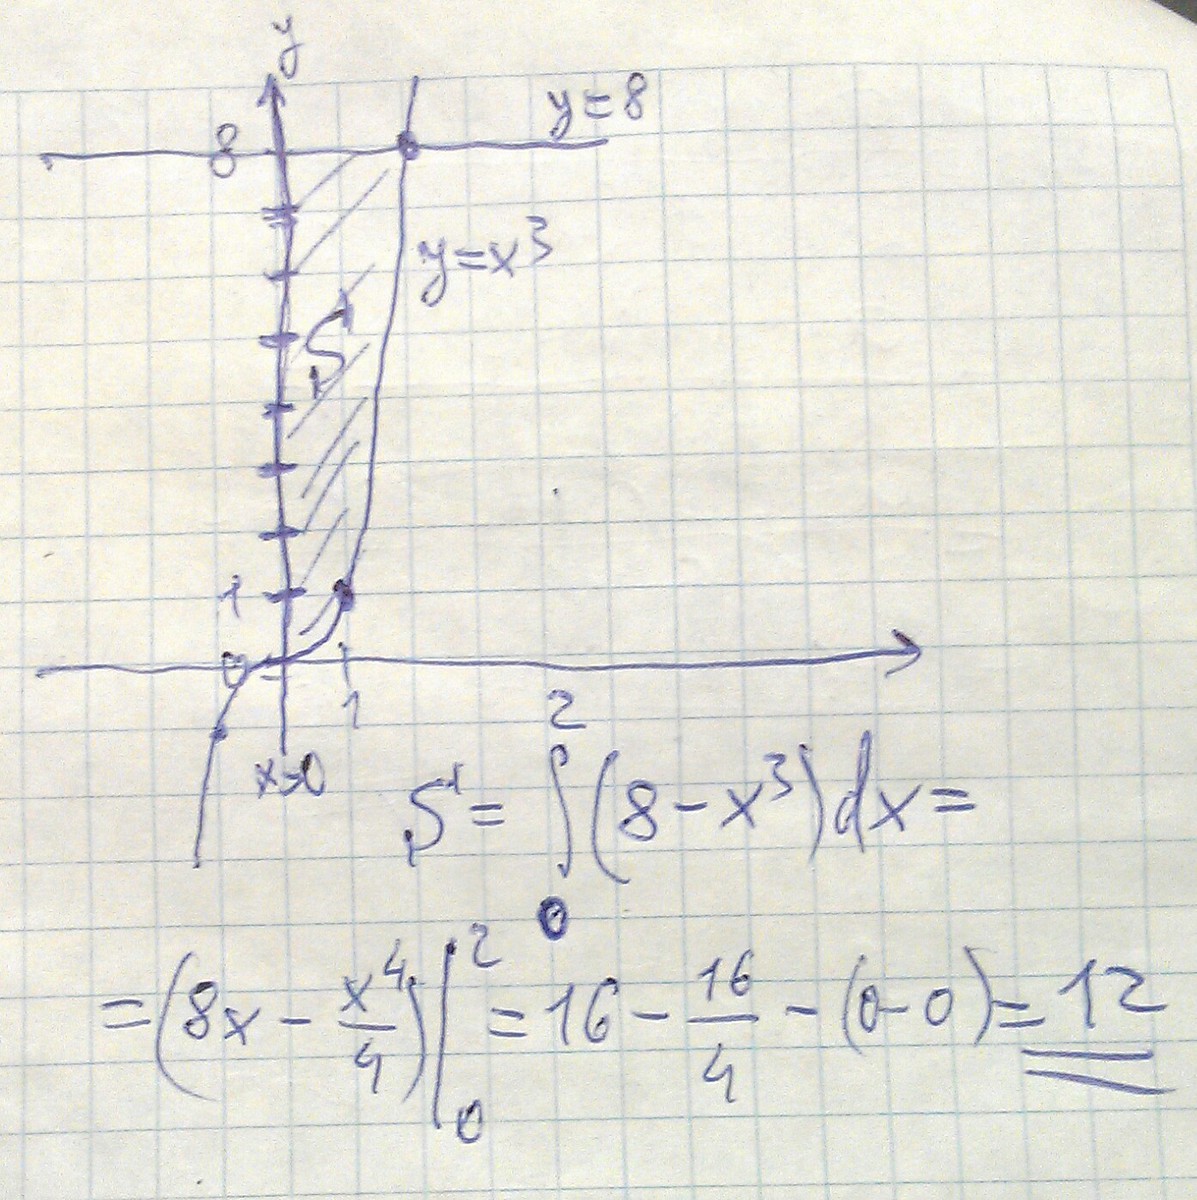 y
y=8
8
y=x³
S
1
0
1
x=0
S = ∫₀² (8-x³)dx =
= (8x - x⁴/4)|₀² = 16 - 16/4 - (0-0) = 12